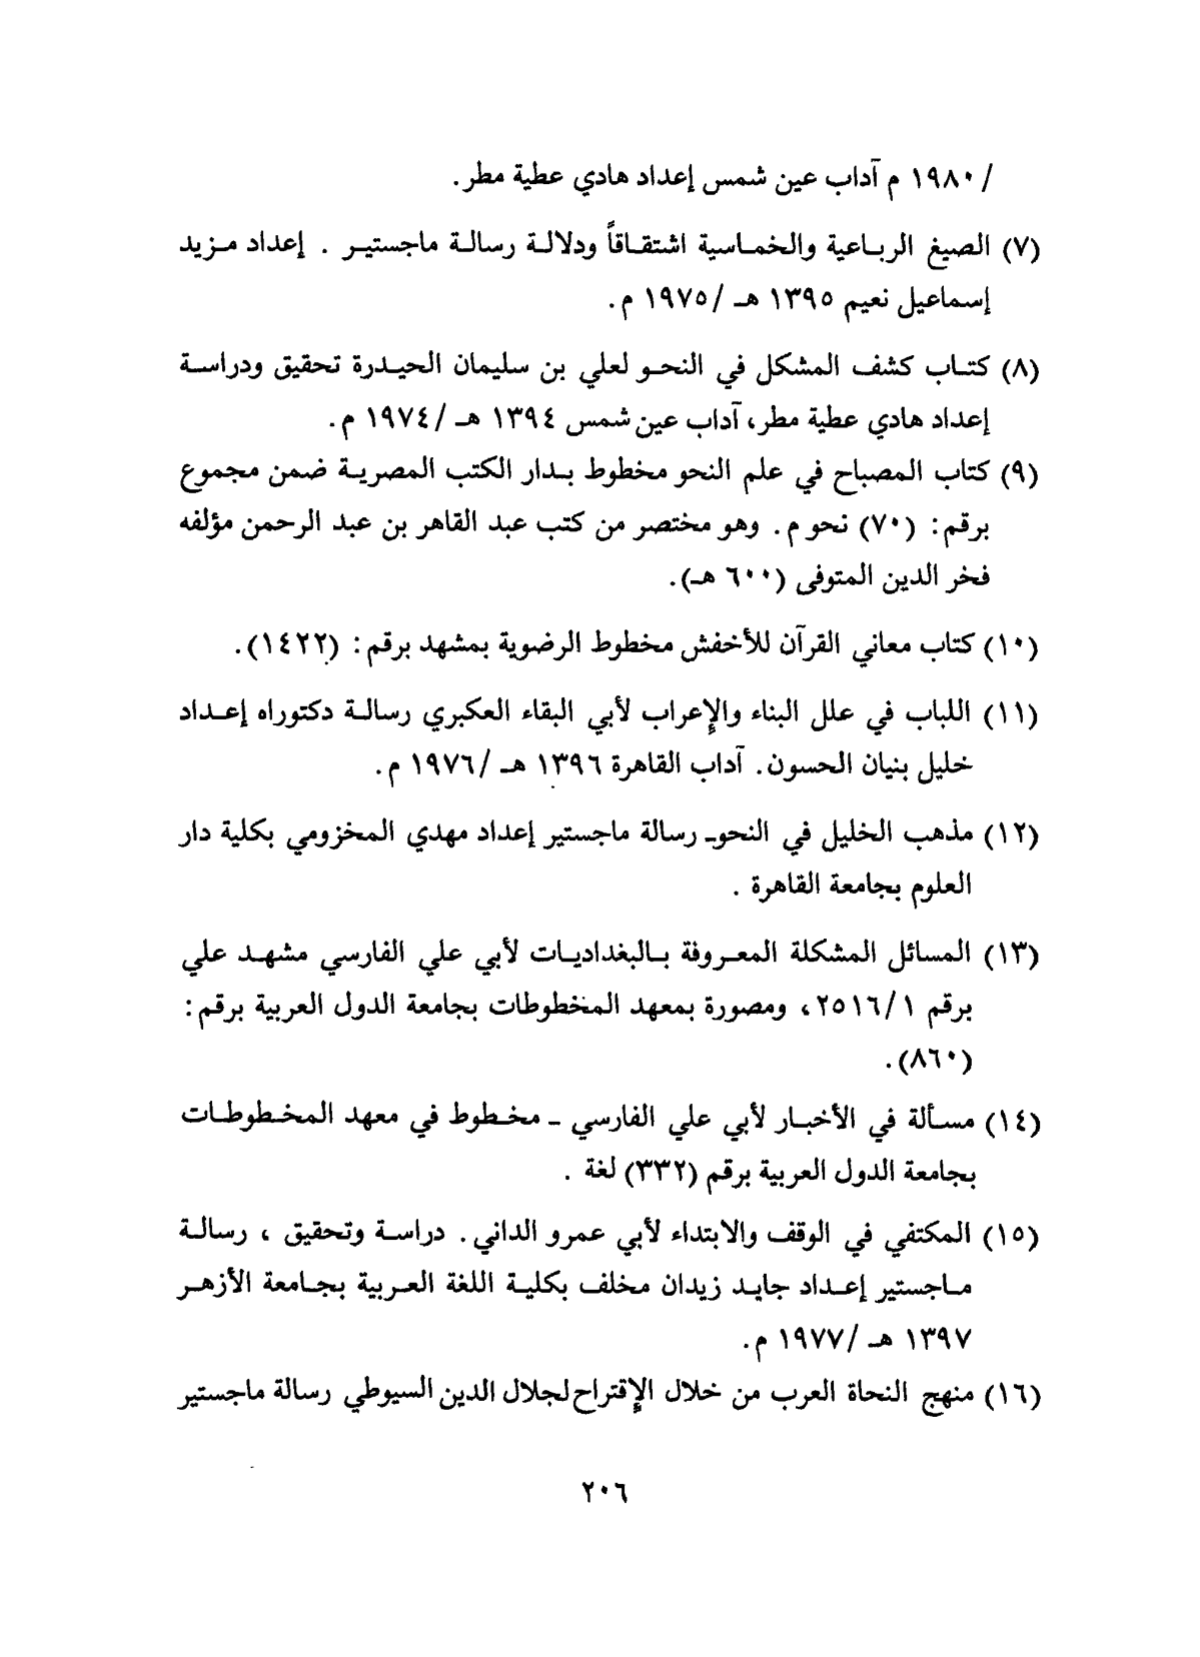 / ١٩٨٠ م آداب عين شمس إعداد هادي عطية مطر.
(٧) الصيغ الرباعية والخماسية اشتقاقاً ودلالة رسالة ماجستير . إعداد مزيد
إسماعيل نعيم ١٣٩٥ هـ / ١٩٧٥ م.
(٨) كتاب كشف المشكل في النحو لعلي بن سليمان الحيدرة تحقيق ودراسة
إعداد هادي عطية مطر، آداب عين شمس ١٣٩٤ هـ / ١٩٧٤ م.
(٩) كتاب المصباح في علم النحو مخطوط بدار الكتب المصرية ضمن مجموع
برقم: (٧٠) نحو م. وهو مختصر من كتب عبد القاهر بن عبد الرحمن مؤلفه
فخر الدين المتوفى (٦٠٠ هـ).
(١٠) كتاب معاني القرآن للأخفش مخطوط الرضوية بمشهد برقم: (١٤٢٢).
(١١) اللباب في علل البناء والإعراب لأبي البقاء العكبري رسالة دكتوراه إعداد
خليل بنيان الحسون. آداب القاهرة ١٣٩٦ هـ / ١٩٧٦ م.
(١٢) مذهب الخليل في النحو ـ رسالة ماجستير إعداد مهدي المخزومي بكلية دار
العلوم بجامعة القاهرة .
(١٣) المسائل المشكلة المعروفة بالبغداديات لأبي علي الفارسي مشهد علي
برقم ٢٥١٦/١، ومصورة بمعهد المخطوطات بجامعة الدول العربية برقم:
(٨٦٠).
(١٤) مسألة في الأخبار لأبي علي الفارسي ـ مخطوط في معهد المخطوطات
بجامعة الدول العربية برقم (٣٣٢) لغة .
(١٥) المكتفي في الوقف والابتداء لأبي عمرو الداني. دراسة وتحقيق ، رسالة
ماجستير إعداد جايد زيدان مخلف بكلية اللغة العربية بجامعة الأزهر
١٣٩٧ هـ / ١٩٧٧ م.
(١٦) منهج النحاة العرب من خلال الإقتراح لجلال الدين السيوطي رسالة ماجستير
٢٠٦